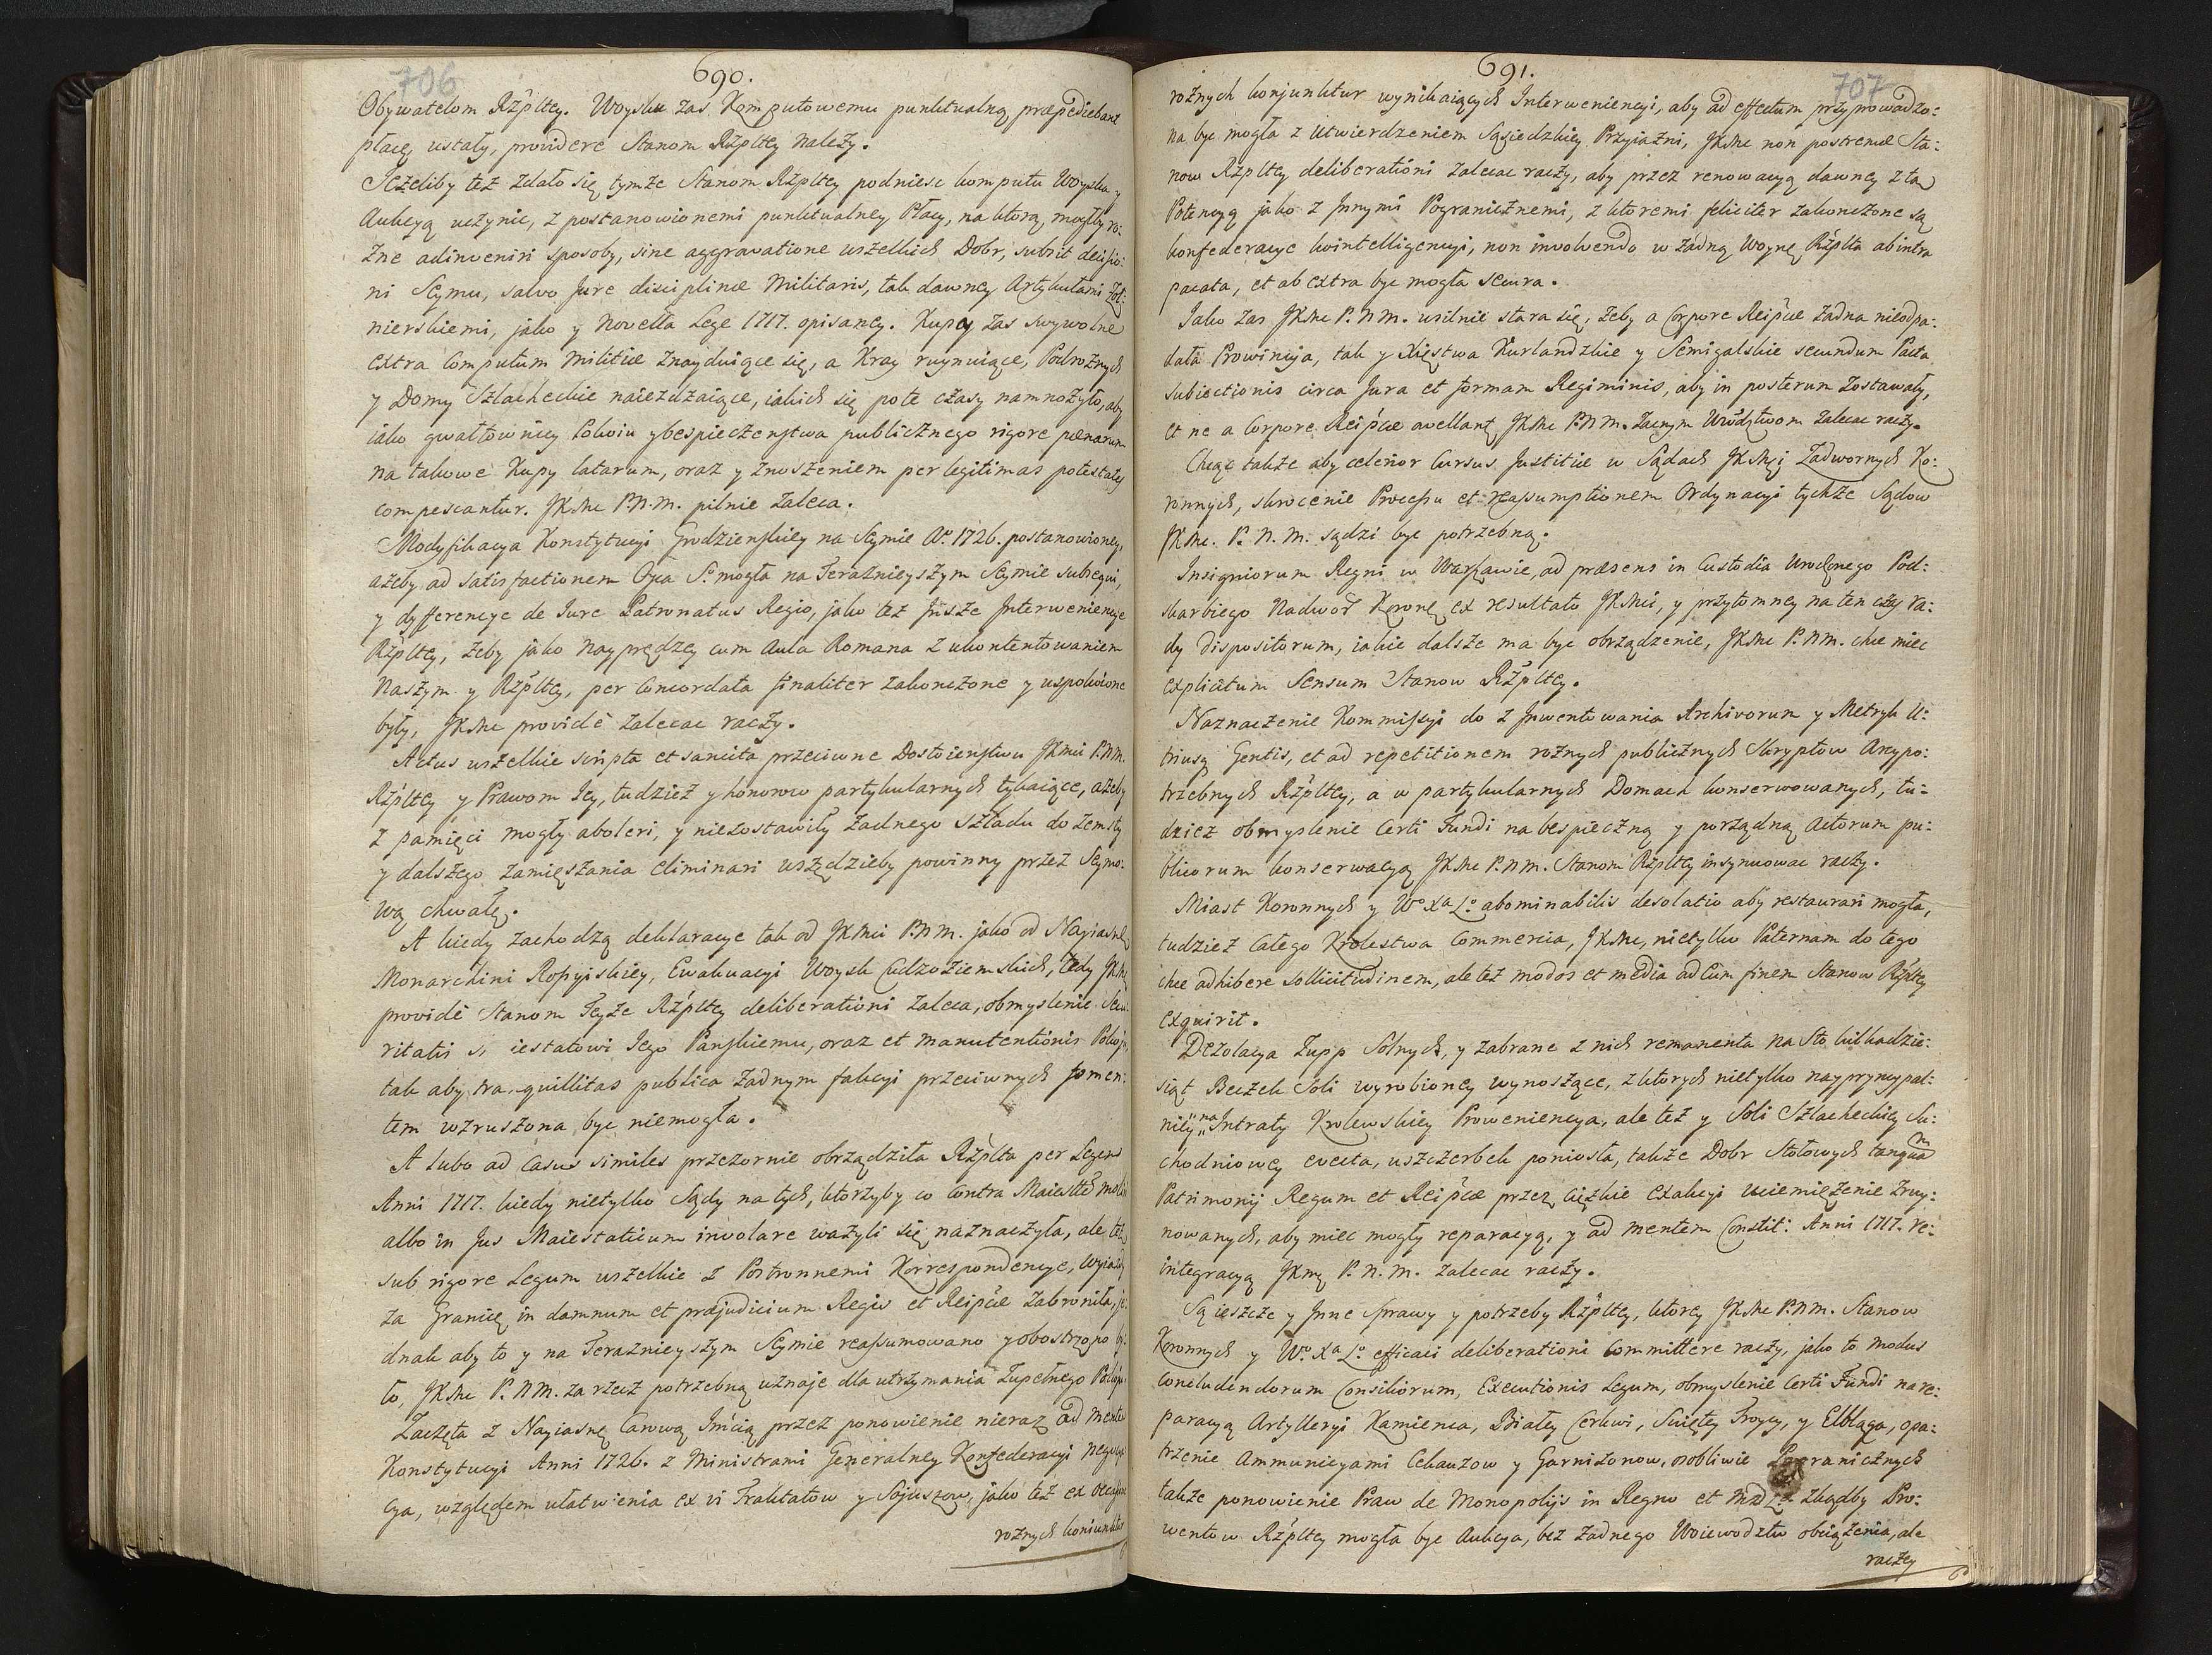 706
690.
Obywatelom Rzpltey. Woysku zas Komputowemu punktualną præpediebant
płacę, ustały, providere Stanom Rzpltey należy.
Jeżeliby też zdało się tymże Stanom Rzpltey podniesc komputu Woyska y
Aukcyą uczynic, z postanowionemi punktualney Płacy, na ktorą mogłby ro:
żne adinveniri sposoby, sine aggravatione wszelkich Dobr, subsit decisio:
ni Seymu, salvo Jure disciplinæ Militaris, tak dawney Artykułami Żoł:
nierskiemi, jako y Novella Lege 1717. opisaney. Kupy zas swywolne
extra Computum Militiæ znayduiące się, a Kray ruynuiące, Podrożnych
y Domy Szlacheckie naieżdzaiące, iakich się pote czasy namnożyło, aby
iako gwałtownicy Pokoiu y bespieczenstwa publicznego rigore pœnarum
na takowe Kupy latarum, oraz y znoszeniem per legitimas potestates
compescantur. JKMc P.N.M. pilnie zaleca.
Modyfikacya Konstytucyi Grodzienskiey na Seymie Ao. 1726. postanowioney,
ażeby ad satisfactionem Oyca So. mogła na Terażnieyszym Seymie subsequi,
y dyfferencye de Jure Patronatus Regio, jako też Jnsze Jnterweniencye
Rzpltey, żeby jako nayprędzey cum Aula Romana z ukontentowaniem
Naszym y Rzpltey, per Concordata finaliter zakonczone y uspokoione
były, JKMc providè zalecac raczy.
Actus wszelkie scripta et sancita przeciwne Dostoienstwu JKMci P.N.M.
Rzpltey y Prawom Jey, tudzież y honorow partykularnych tykaiące, ażeby
z pamięci mogły aboleri, y niezostawiły żadnego szladu do zemsty
y dalszego zamięszania eliminari wszędzieby powinny przez Seymo:
wą chwałę.
A kiedy zachodzą deklaracye tak od JKMci P.N.M. jako od Nayiasney
Monarchini Rossyiskiey, Ewakuacyi Woysk Cudzoziemskich, tedy JKMc
providè Stanom Teyże Rzpltey deliberationi zaleca, obmyslenie Secu:
ritatis iestatowi Jego Panskiemu, oraz et manutentionis Pokoju,
tak aby tranquillitas publica żadnym fakcyi przeciwnych fomen:
tem wzruszona byc niemogła.
A lubo ad Casus similes przezornie obrządziła Rzplta per Legem
Anni 1717. kiedy nietylko Sądy na tych, ktorzyby co Contra Maiesttem
albo in Jus Maiestaticum involare ważyli się naznaczyła, ale też
sub rigore Legum wszelkie z Postronnemi Korrespondencye, wyiazdy
za Granicę in damnum et præjudicium Regis et Reipcæ zabroniła, je:
dnak aby to y na Terażnieyszym Seymie reassumowano y obostrzono by:
to, JKMc P.N.M. za rzecz potrzebną uznaje dla utrzymania zupełnego Pokoju.
Zaczęta z Nayiasney Carową Jmcią przez ponowienie nieraz ad mentem
Konstytucyi Anni 1726. z Ministrami Generalney Konfederacyi negocya:
cya, względem ułatwienia ex vi Traktatow y Sojuszow, jako też ex occasione
rożnych koniunktur
707
691.
rożnych konjunktur wynikaiących Interweniencyi, aby ad effectum przyprowadzo:
na byc mogła z utwierdzeniem Sąsiedzkiey Przyiażni, JKMc non postremæ Sta:
now Rzpltey deliberationi zalecac raczy, aby przez renowacyą dawney z tą
Potencyą jako z Jnnymi Pogranicznemi, z ktoremi feliciter zakonczone są
konfederacye kointelligencyi, non involvendo w żadną Woynę Rzplta ab intra
pacata, et ab extra byc mogła secura.
Jako zas JKMc P.N.M. usilnie stara się, żeby a Corpore Reipcæ żadna nieodpa:
dała Prowincya, tak y Xięstwa Kurlandzkie y Semigalskie secundum Pacta
subiectionis circa Jura et formam Regiminis, aby in posterum zostawały,
et ne a Corpore Reipcæ avellantr JKMc P.N.M. zacnym Wwdztwom zalecac raczy.
Chcąc także aby celerior Cursus Justitiæ w Sądach JKMci Zadwornych Ko:
ronnych, skrocenie Processu et reassumptionem Ordynacyi tychże Sądow
JKMc. P.N.M. sądzi byc potrzebną.
Insigniorum Regni w Warszawie, ad præsens in Custodia Urodzonego Pod:
skarbiego Nadwor Korong ex resultato JKMci, y przytomney na ten czas ra:
dy dispositorum, iakie dalsze ma byc obrządzenie, JKMc P.N.M. chce miec
explicitum Sensum Stanow Rzpltey.
Naznaczenie Kommissyi do z Jnwentowania Archivorum y Metryk U:
triusq Gentis, et ad repetitionem rożnych publicznych Skryptow Arcypo:
trzebnych Rzpltey, a w partykularnych Domach konserwowanych, tu:
dzież obmyslenie Certi Fundi na bespieczną y porządną Actorum pu:
blicorum konserwacyą JKMc P.N.M. Stanom Rzpltey insynuowac raczy.
Miast Koronnych y Wo Xa Lo abominabilis desolatio aby restaurari mogła,
tudzież całego Krolestwa Commercia, JKMc, nietylko Paternam do tego
chce adhibere sollicitudinem, ale też modos et media ad Eum finem Stanow Rzpltey
exquirit.
Dezolacya Żupp Solnych, y zabrane z nich remanenta na Sto kilkadzie:
siąt Beczek Soli wyrobioney wynoszące, z ktorych nietylko nayprzyncypal:
nieyna Jntraty Krolewskiey Proweniencya, ale też y Soli Szlacheckiey Su:
chodniowey evecta, uszczerbek poniosła, także Dobr Stołowych tanquam
Patrimonij Regum et Reipcæ przez cięzkie exakcyi uciemięzenie zruy:
nowanych, aby miec mogły reparacyą, y ad mentem Constit: Anni 1717. re:
integracyą JKMc P.N.M. zalecac raczy.
Są ieszcze y Jnne Sprawy y potrzeby Rzpltey, ktorey JKMc P.N.M. Stanow
Koronnych y Wo. Xa Lo. efficaci deliberationi Committere raczy, jako to modus
concludendorum Consiliorum, Executionis Legum, obmyslenie Certi Fundi na re:
paracyą Artylleryi Kamienca, Białey Cerkwi, Swiętey Troycy, y Elbląga, opa:
trzenie Ammunicyami Cekauzow y Garnizonow, osobliwie Pogranicznych
także ponowienie Praw de Monopolijs in Regno et MDL. zkądby Pro:
wentow Rzpltey mogła byc Aukcya, bez żadnego Woiewodztw obciążenia, ale
raczey